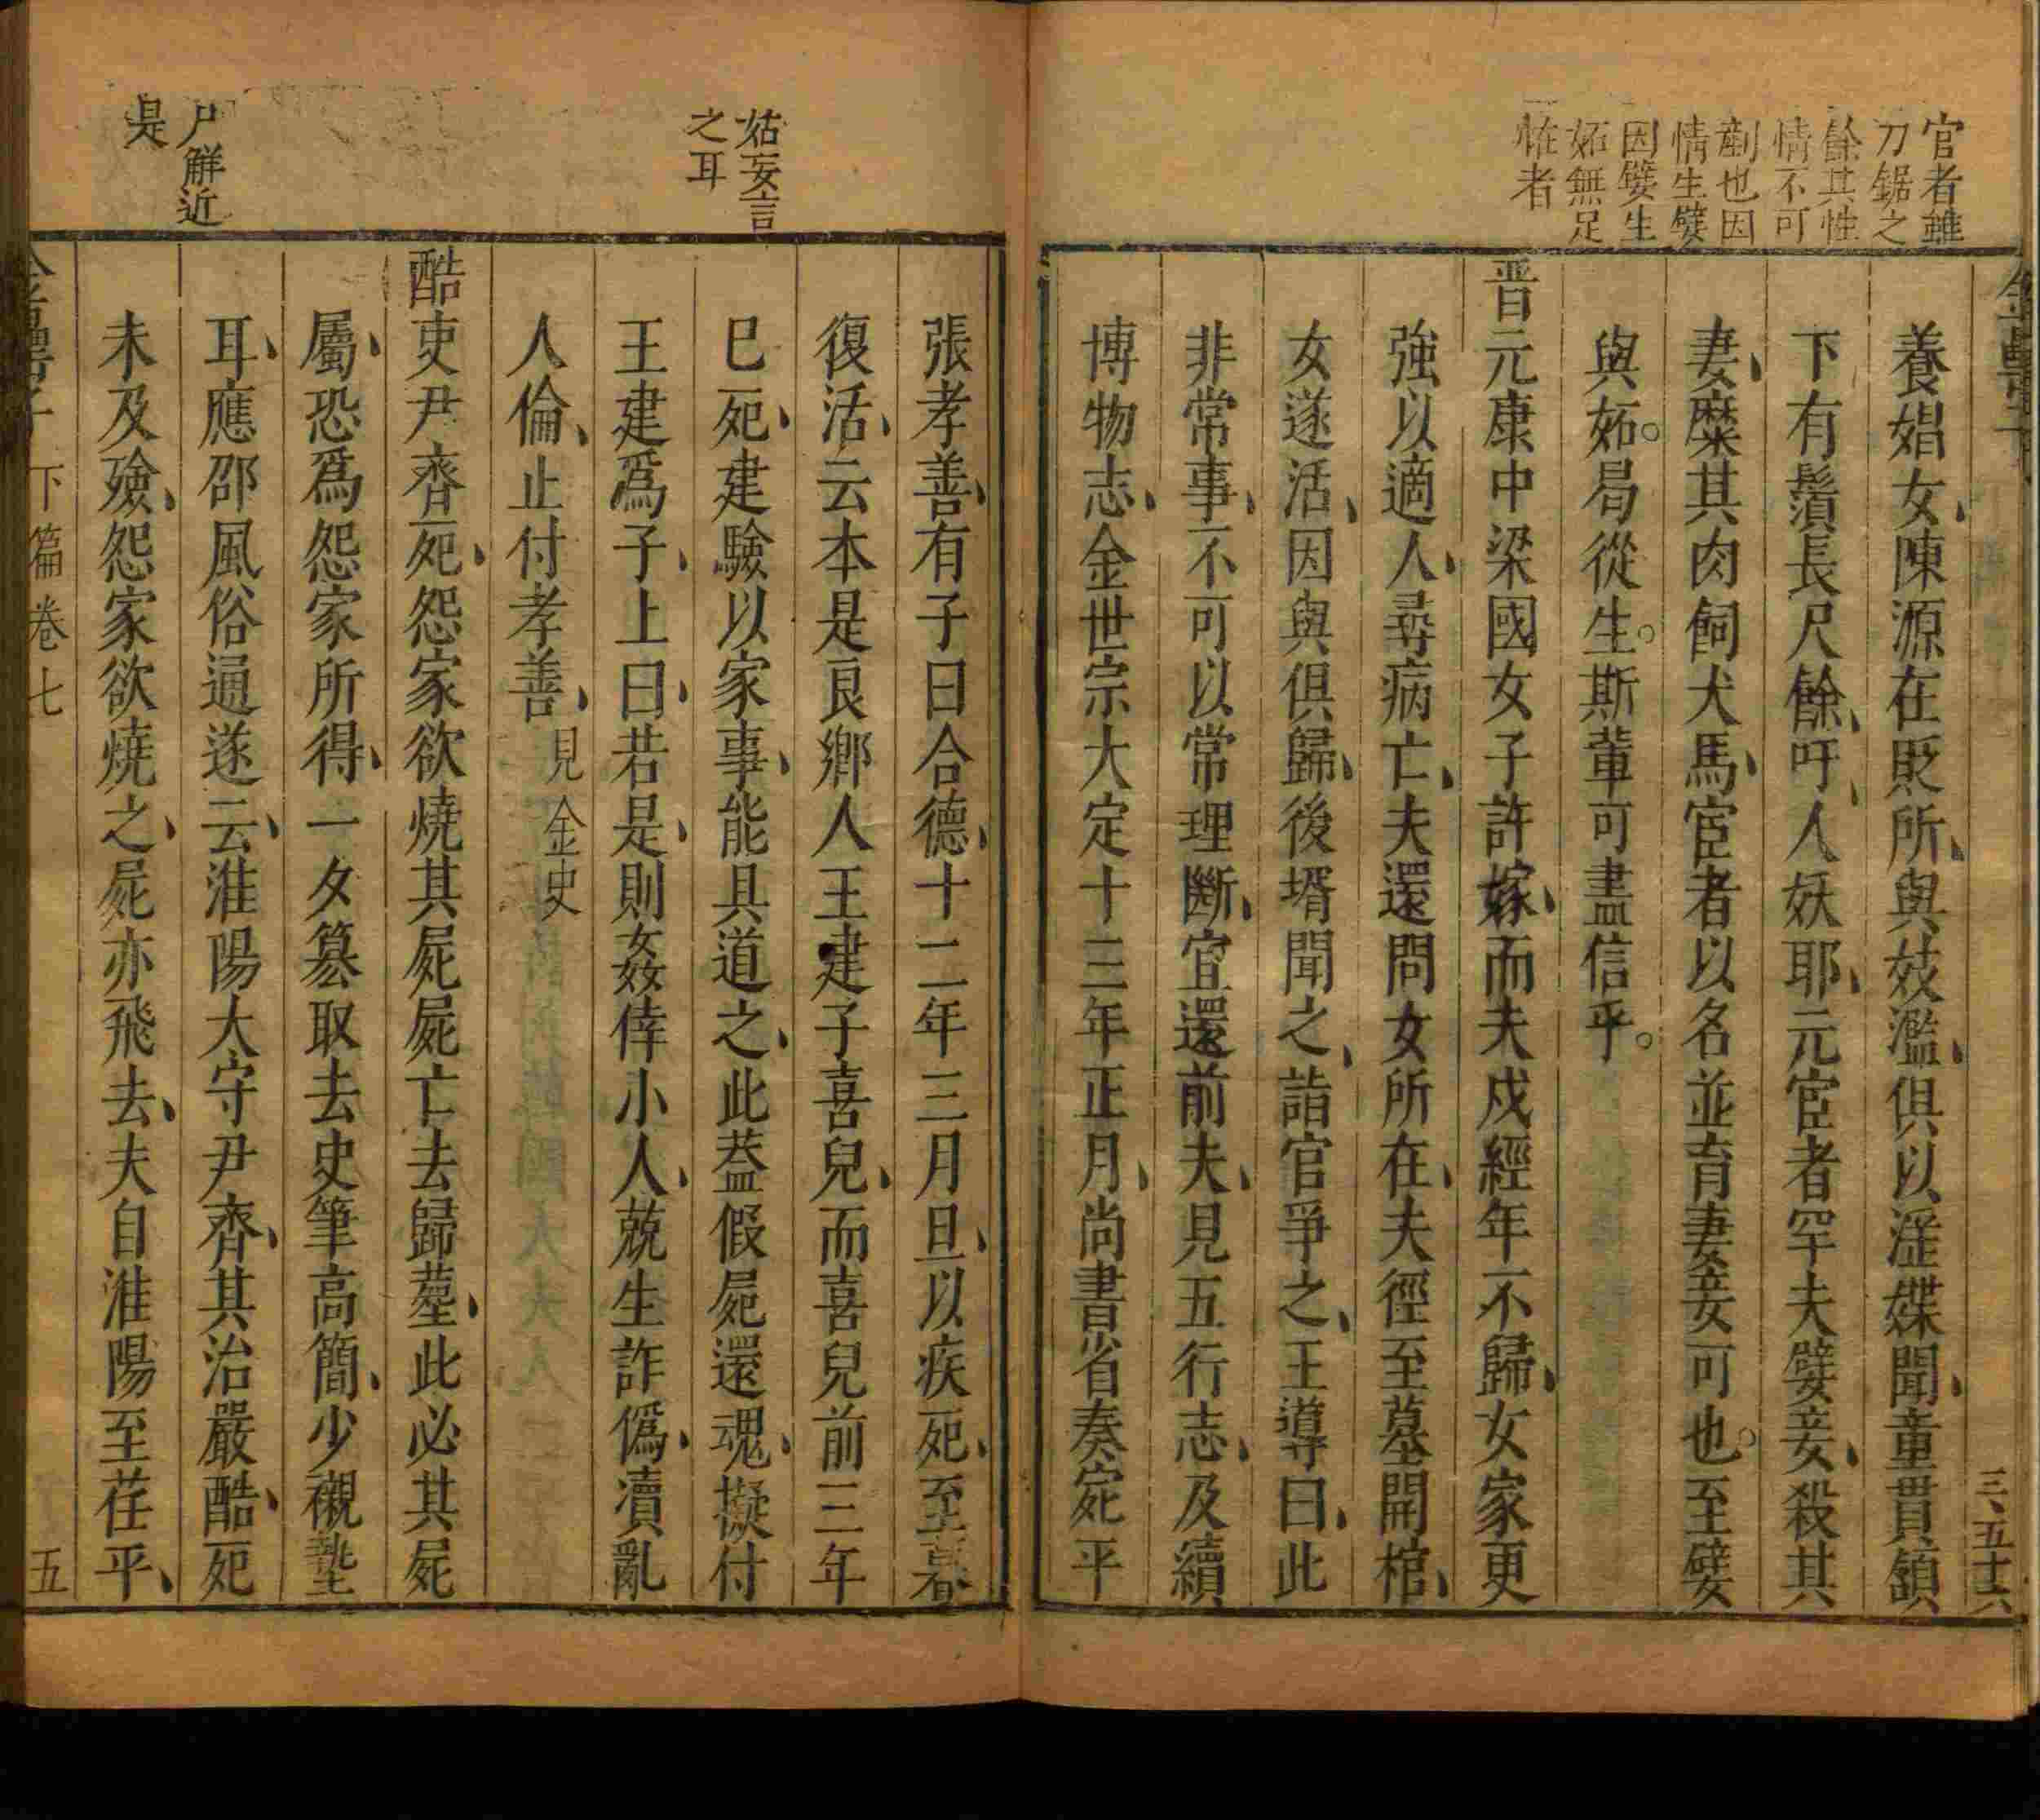 官者雖
刀鋸之
餘其性
情不可
劑也因
情生嬖
因嬖生
妬無足
恠者
三、五十六
養娼女、陳源在貶所、與妓濫、俱以滛媟聞、童貫頷
下有鬚長尺餘、吁、人妖耶、元宦者罕夫嬖妾、殺其
妻、糜其肉飼犬馬、宦者以名並育妻妾可也。至嬖
與妬。曷從生。斯輩可盡信乎。
晋元康中梁國女子許嫁、而夫戍經年不歸、女家更
強以適人、尋病亡、夫還問女所在、夫徑至墓開棺、
女遂活、因與俱歸、後壻聞之、詣官爭之、王導曰、此
非常事、不可以常理斷、宜還前夫、見五行志、及續
博物志、金世宗大定十三年正月、尚書省奏宛平
姑妄言
之耳
尸解近
是
張孝善、有子曰合德、十二年三月旦、以疾死、至暮
復活、云本是良鄉人王建子喜兒、而喜兒前三年
已死、建驗以家事、能具道之、此葢假屍還魂、擬付
王建爲子、上曰、若是、則姦倖小人、兢生詐僞、瀆亂
人倫、止付孝善、見金史
酷吏尹齊死、怨家欲燒其屍屍亡去歸塟、此必其屍
屬、恐爲怨家所得、一夕篡取去史筆高簡、少襯墊
耳、應邵風俗通遂云、淮陽大守尹齊、其治嚴酷、死
未及殮、怨家欲燒之、屍亦飛去、夫自淮陽至茌平、
金罍子 下篇卷七 五